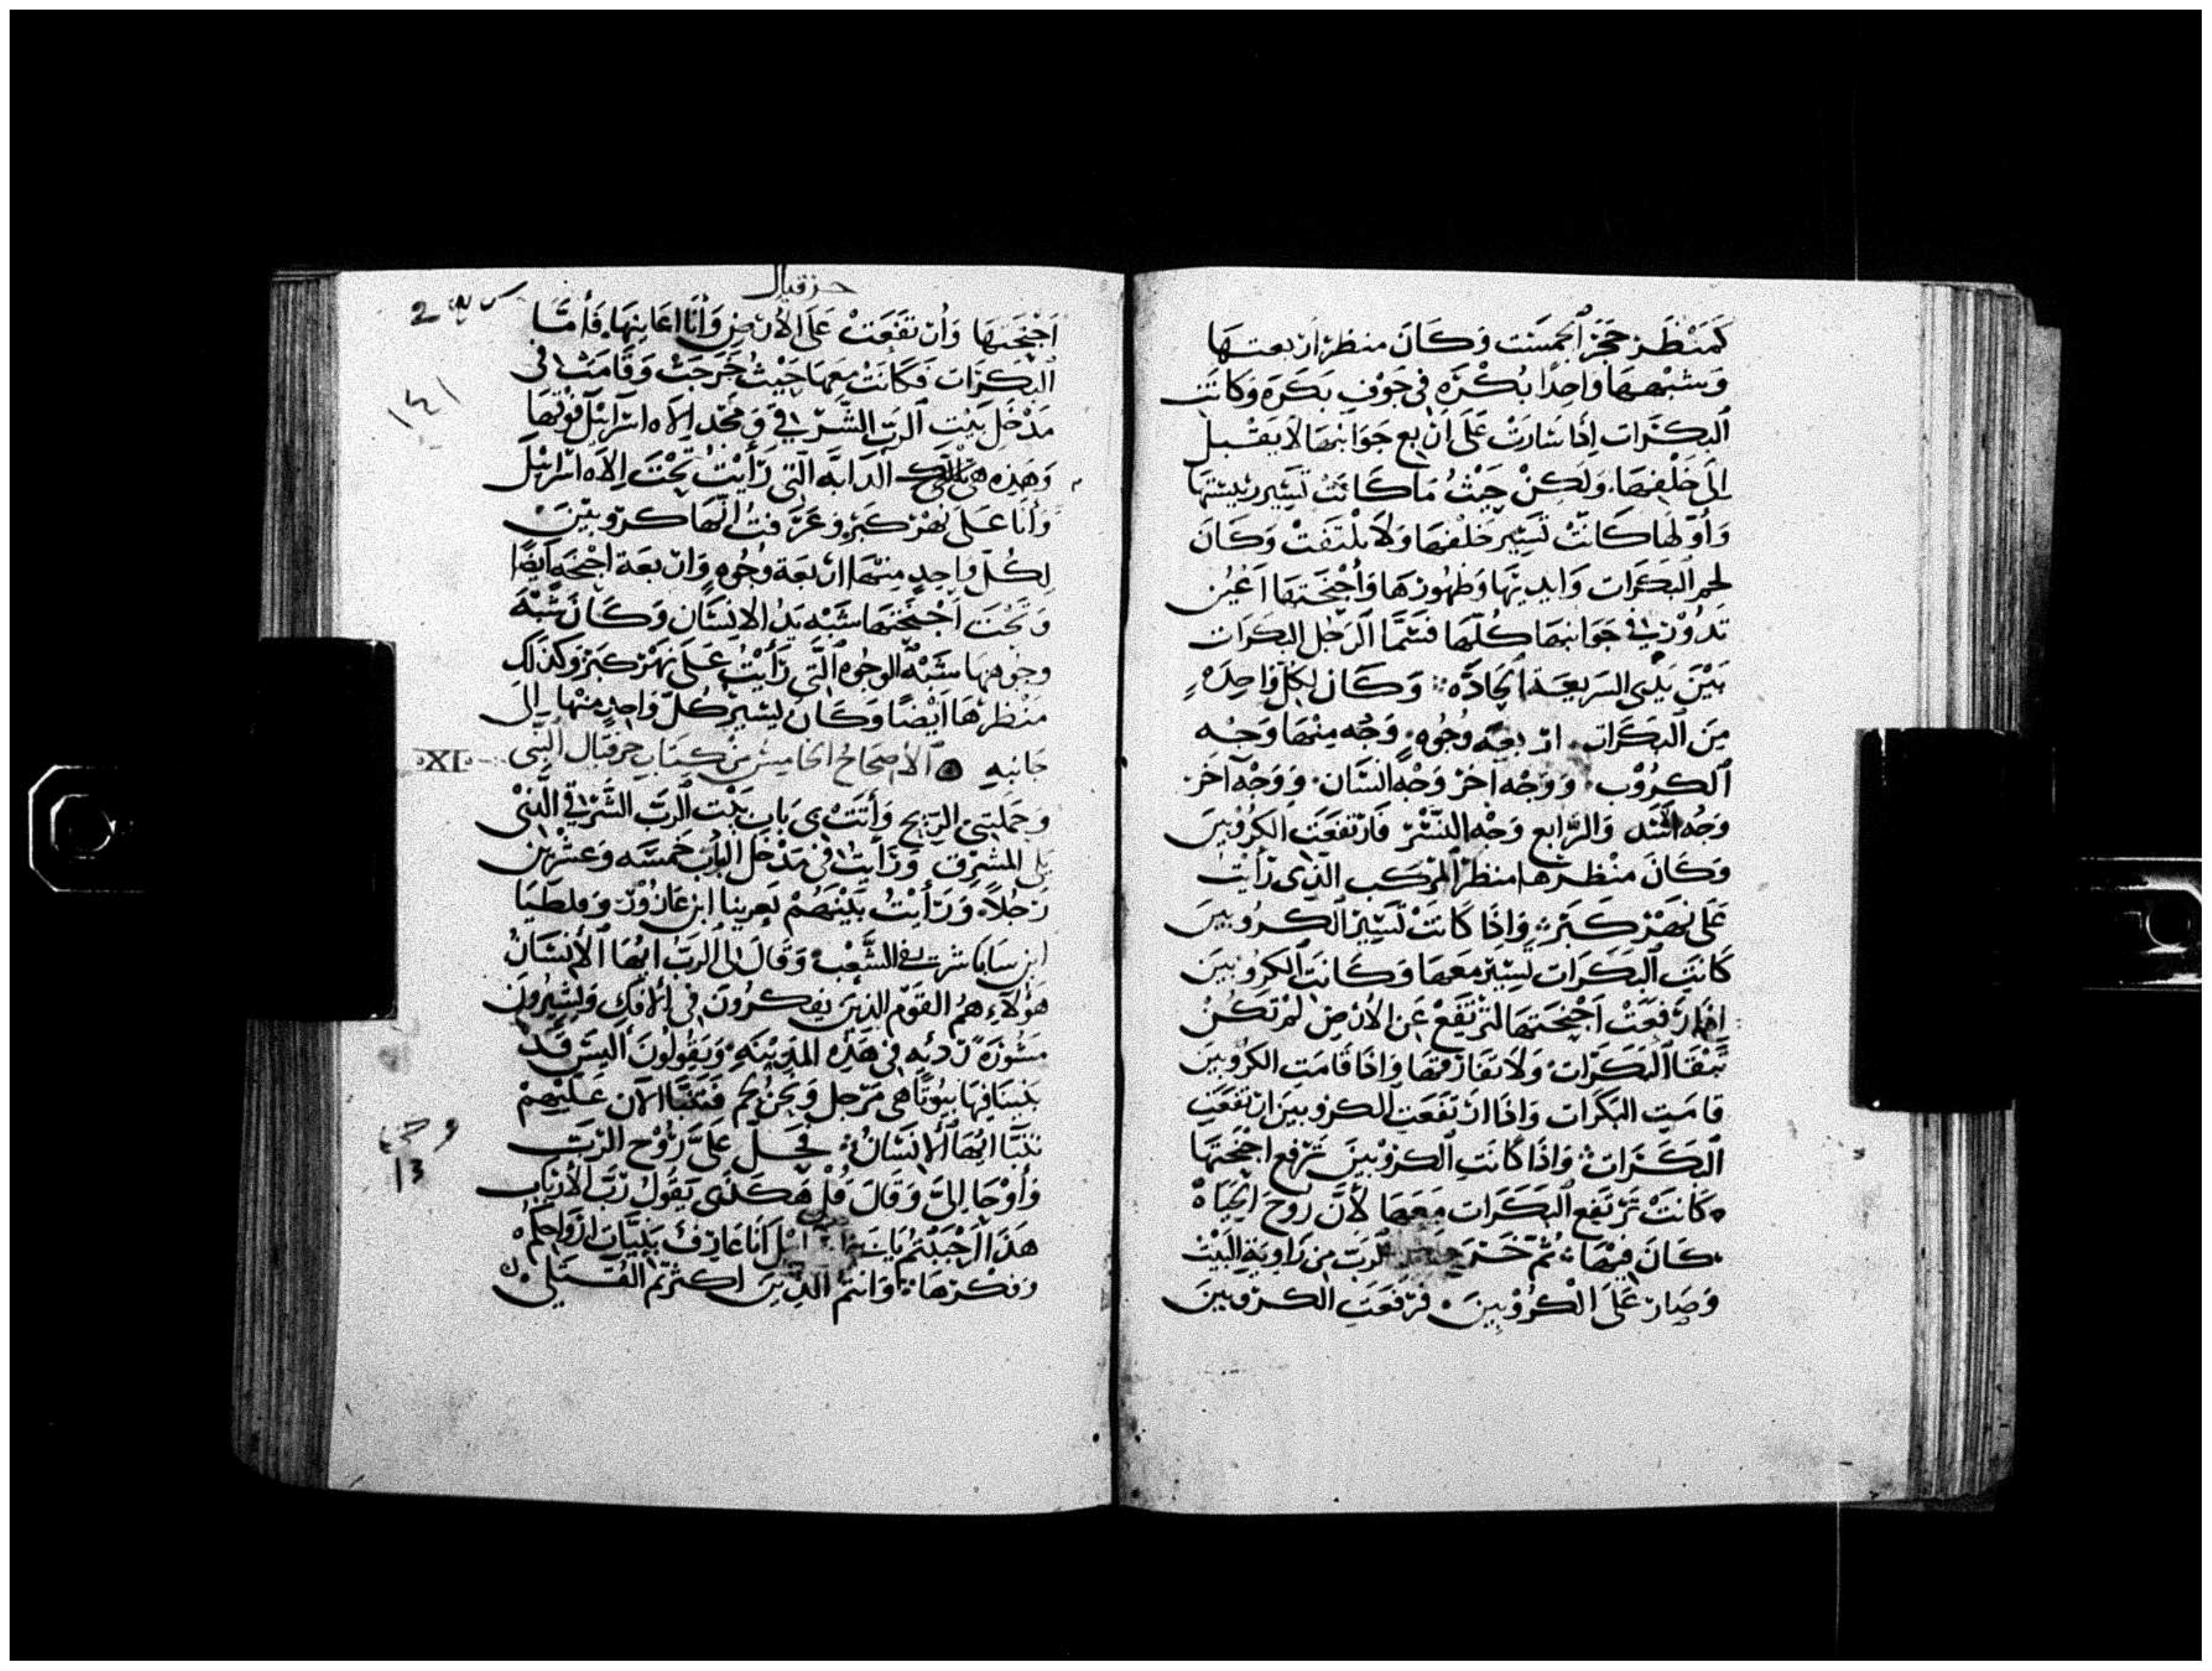 كَمَنْظَرِ حَجَرِ الجَمَسْت وَكَانَ منظر اربعتها
وَشبهها وَاحِدًا بُكْرَه فى جَوْفِ بَكَرَه وَكانَت
البكَرَات اِذَا سَارَتْ عَلَى اربع جَوَانبهَا لاَ يَقْبل
اِلىَ خَلْفهَا وَلَكِنْ حَيْثُ مَا كَانَتْ تَسِير رئيستها
وَأَوّلهَا كَانَتْ تَسِير خلفهَا وَلاَ تلْتَفتْ وَكَانَ
لحم البَكَرَات وَايديهَا وَظهُورهَا وَأَجْنِحَتهَا اَعْيُن
تَدُوْر فى جَوَانبهَا كُلّهَا فَسَمَّا الرَجُل البَكَرَات
بَيْنَ يَدَى السَريعَة الحَادّه وَكَانَ لِكُل وَاحِدَه
مِنَ البَكَرَات اربعَه وُجُوه وَجْه مِنْهَا وَجْه
الكرُوْب وَوَجْه اخر وَجْه انسَان وَوَجْه آخَر
وَجْه اسَد وَالرّابع وَجْه النسْر فَارتفَعَت الكرُوبينَ
وَكَانَ منْظرهَا منظر المَرْكَب الذى رَأيت
عَلى نهْر كَبَر وَاِذَا كَانَتْ تَسِيْر الكرُوبينَ
كَانَتِ البَكَرَات تَسِيْر مَعهَا وَكَانَتِ الكرُوبينَ
اِذَا رَفعَتْ اَجْنِحَتهَا لتَرْتَفَعْ عَنِ الاَرْضِ لَمْ تَكُنْ
تَبْقَا البَكَرَات وَلاَ تفَارقهَا وَاذَا قَامَتِ الكرُوبينَ
قامَتِ البَكَرَات وَاذَا ارْتَفَعَتِ الكروبينَ ارتفعَتِ
البَكَرَات وَاذَا كَانَتِ الكروْبينَ تَرْفع اجْنِحَتهَا
كَانَتْ تَرْتَفع البَكَرَات مَعَهَا لأَنَّ رُوحَ الحَيَاهْ
كَانَ فيْهَا ثُمَّ خَرَجَ الرَبّ مِن زَاويَةِ البَيْتْ
وَصَارَ عَلَىَ الْكرُوْبِينَ فرَفَعَتِ الكروبينَ
حزقيال
اَجْنِحَتهَا وَارتفَعَتْ عَلَى الأَرْضِ وَأَنَا اعَاينهَا فَأَمَّا
البكَرَات فَكَانَتْ مَعهَا حَيْثُ خَرَجَتْ وَقَامَتْ فى
مَدْخَل بَيْتِ الرَبّ الشَّرْقي وَمَجْد اِلاَه اسرَائيل فوْقهَا
وَهَذِه هىَ تلك الدَابَّه الَّتى رَأَيْتُ تَحْتَ اِلاَه اسْرَائيْل
وَأنَا عَلَى نهرْ كَبَر وَعَرَفتُ انّهَا كروبيْنَ
لِكُلّ وَاحِدٍ مِنهَا اربَعَة وُجُوه وَاربعَة اجْنحَه ايضًا
وَتَحْتَ اَجْنِحَتهَا شَبْه يَدُ الانسَان وَكَانَ شَبْه
وجُوههَا شَبْه الوجُوه الَّتى رَأَيْتُ عَلَى نَهْر كَبَر وَكَذلك
منْظرهَا ايْضًا وَكَانَ يَسِيْر كُلّ وَاحِدٍ منْهَا اِلىَ
جَانبه الأصحَاح الخامِسْ مِنْ كتَاب حزقيال النبى
XI
وَحَملتنى الريح وَأَتَتْ بى بَاب بَيْت الرَبّ الشَّرقىّ الذى
يَلى المشرِق وَرَأَيتُ فى مَدْخَل البَاب خَمسَه وَعشْريْن
رَجُلاً وَرَأَيْتُ بَيْنَهُمْ يَعرينا ابن عَازُوْر وَفلطيَا
ابن سَايا شرف الشَّعْب وَقَالَ لى الرَبّ ايّهَا الأنسَانُ
هَؤلآءِ هُمُ القَوْم الذينَ يفكرُونَ فى الافك وَيشِيْرُونَ
مَشُوْرَة رَدئيه فى هَذِه المَدينَه وَيقُولونَ اليسَ قَد
بَنينَا فيهَا بيُوتًا هى مَرْجِل وَنَحْنُ لحم فَتَنَبَّا الآن عَليْهمْ
تنَبَّا ايّهَا الأنسَانُ فحَلَّ عَلىَّ رُوْح الرَبّ
وَأَوْحَا اِلىَّ وَقَالَ قُلْ هَكَذَى يَقُولُ رَبّ الأَربَاب
هَذَا اَحْبَبْتُم يَا بنى اسرائيل اَنَا عَارِفٌ بنِيَّاتِ ارْوَاحِكُمْ
وَفكرهَا وَانتُم الَذِينَ اكثرتم القَتلى
١٤١
13